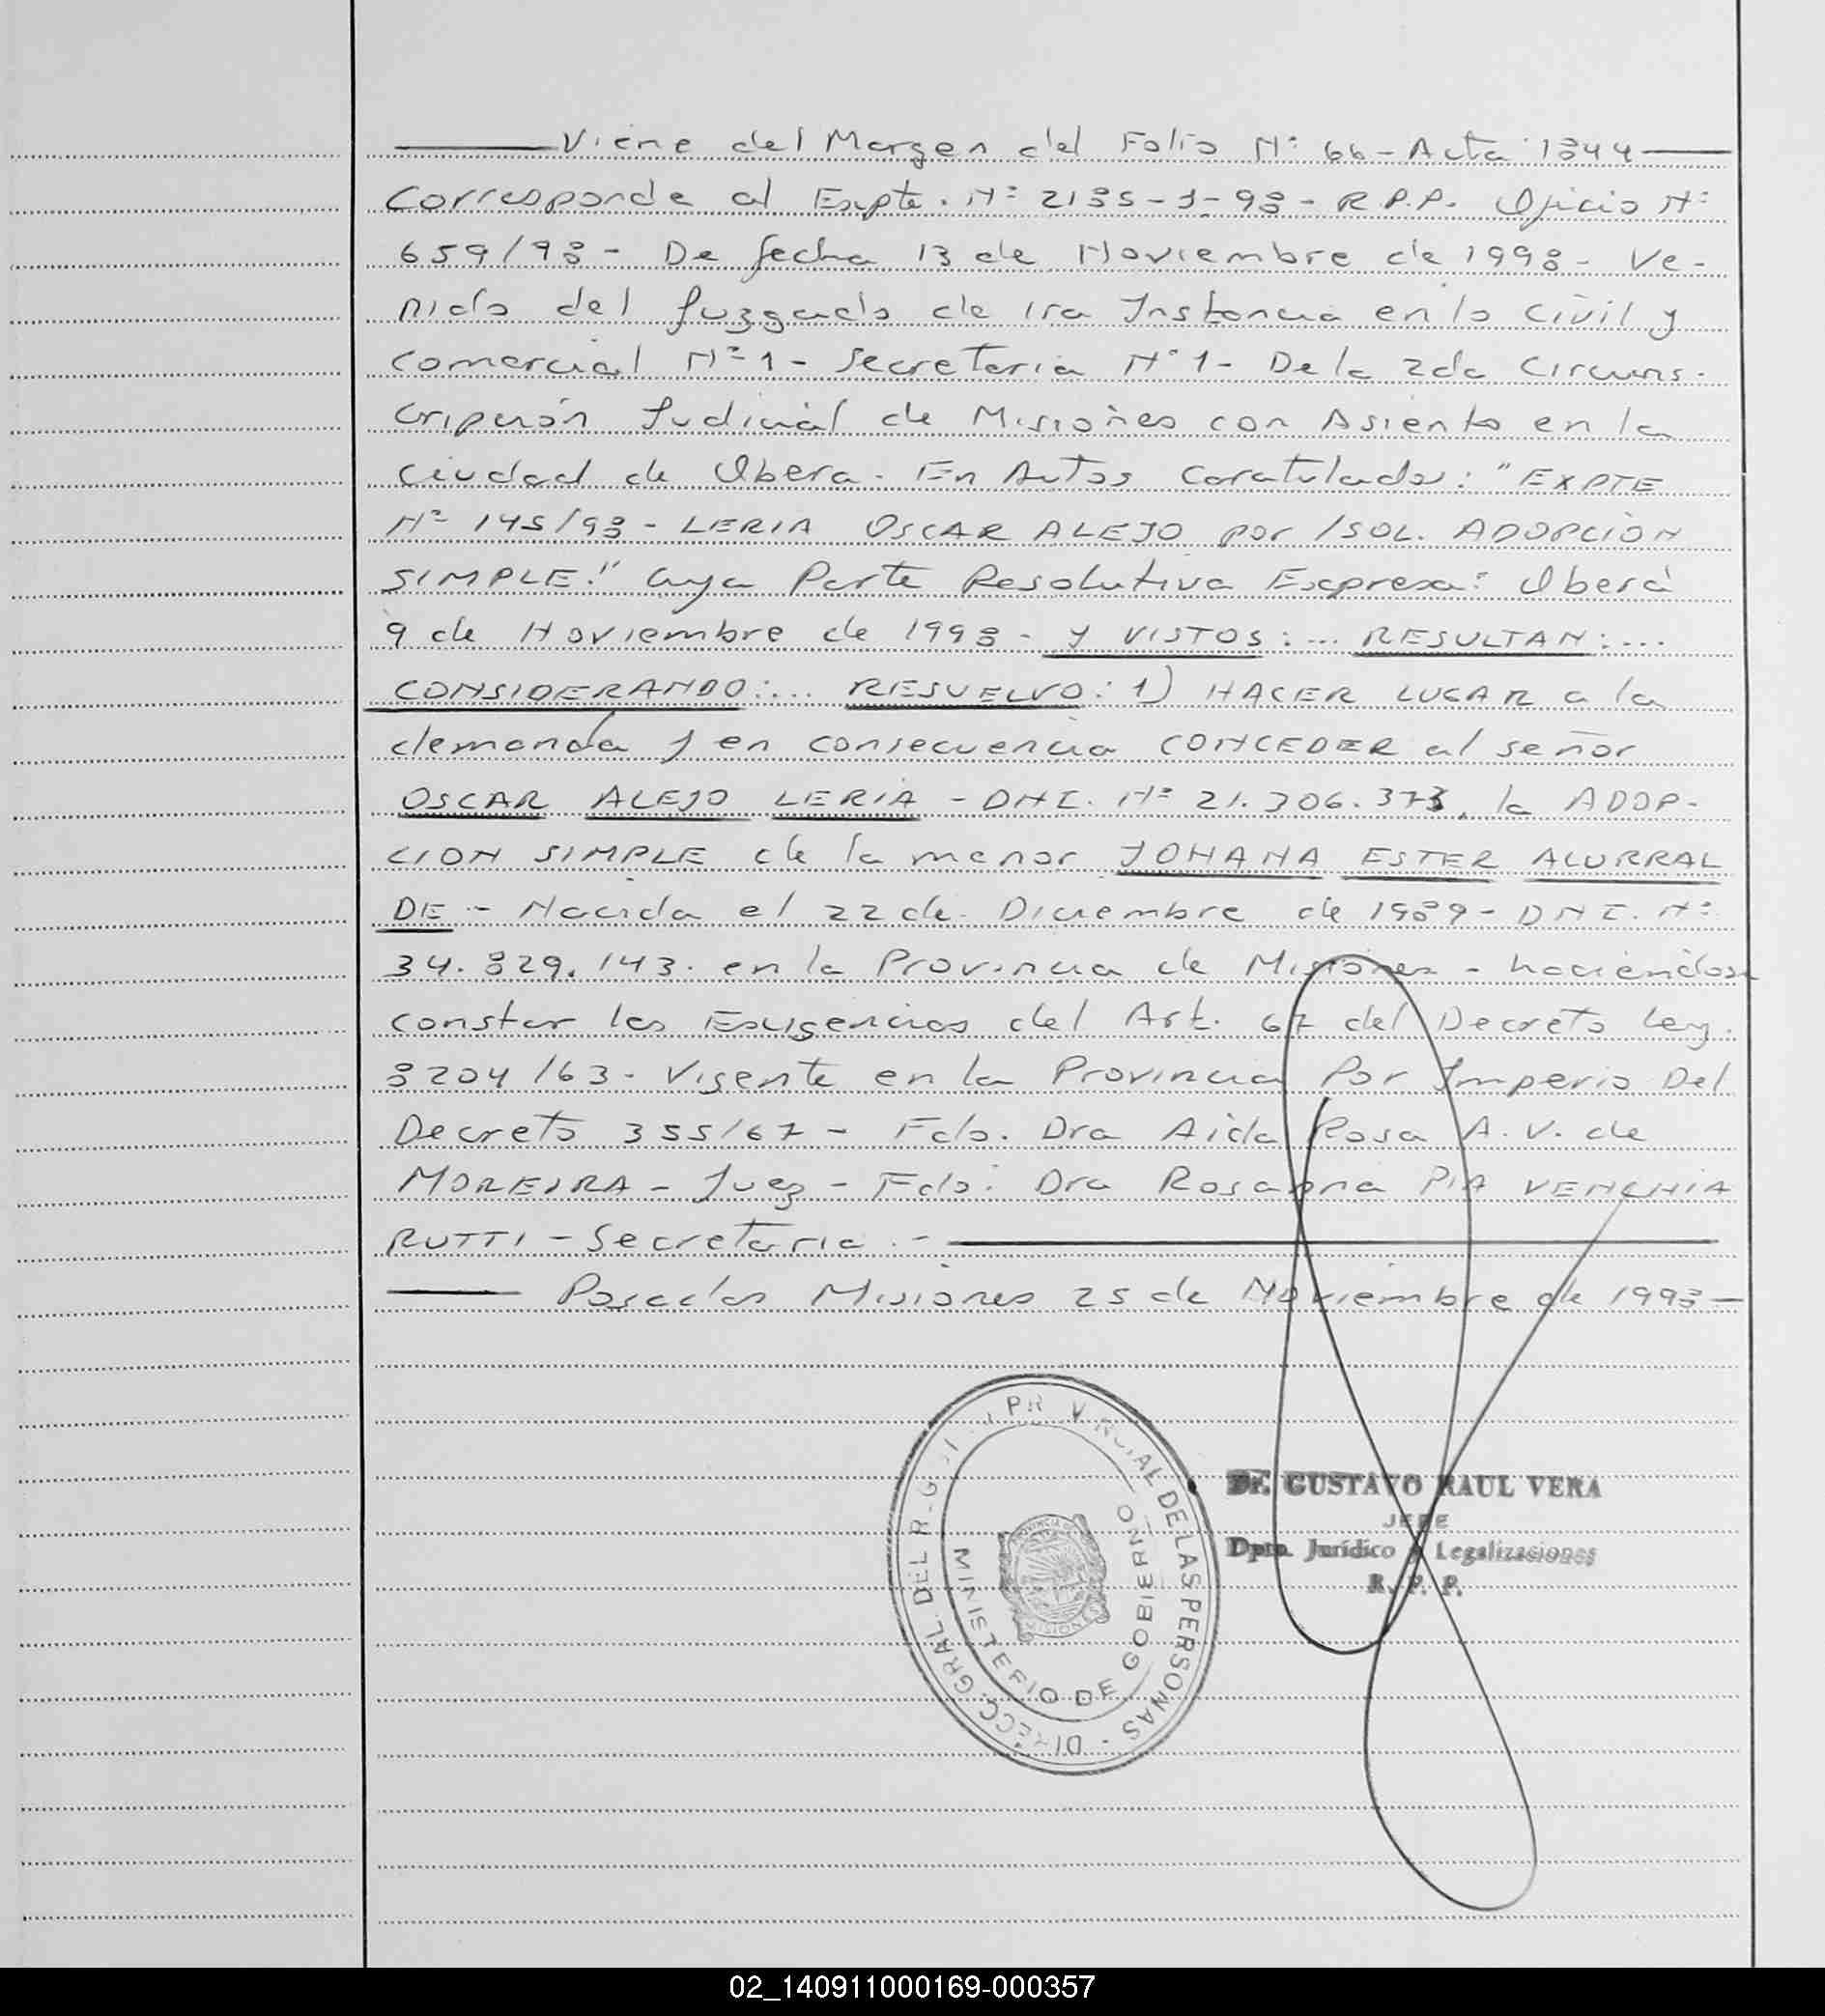 Viene del Margen del Folio Nº 66 - Acta 1844
Corresponde al Expte. Nº 2135-J-98 - R.P.P. Oficio Nº
659/98 - De fecha 13 de Noviembre de 1998 - Ve-
nido del Juzgado de 1ra Instancia en lo Civil y
Comercial Nº 1 - Secretaria Nº 1 - De la 2da Circuns-
cripción Judicial de Misiones con Asiento en la
Ciudad de Obera. En Autos Caratulados: "EXPTE
Nº 145/98 - LERIA OSCAR ALEJO por /SOL. ADOPCIÓN
SIMPLE." Cuya Parte Resolutiva Expresa: Oberá
9 de Noviembre de 1998 - Y VISTOS: ... RESULTAN: ...
CONSIDERANDO: ... RESUELVO: 1) HACER LUGAR a la
demanda y en consecuencia CONCEDER al señor
OSCAR ALEJO LERIA - DNI. Nº 21.306.373, la ADOP-
CION SIMPLE de la menor JOHANA ESTER ALURRAL
DE - Nacida el 22 de Diciembre de 1989 - DNI. Nº
34.829.143. en la Provincia de Misiones - haciendose
constar las Exigencias del Art. 67 del Decreto Ley.
8204/63 - Vigente en la Provincia Por Imperio Del
Decreto 355/67 - Fdo. Dra Aida Rosa A. V. de
MOREIRA - Juez - Fdo: Dra Rosanna PIA VENCHIA
RUTTI - Secretaria .-
Posadas Misiones 25 de Noviembre de 1998 -
DIRECC. GRAL. DEL REGIST. PROVINCIAL DE LAS PERSONAS -
MINISTERIO DE GOBIERNO
PROVINCIA DE
MISIONES
Dr. GUSTAVO RAUL VERA
JEFE
Dpto. Jurídico y Legalizaciones
R. P. P.
02_140911000169-000357